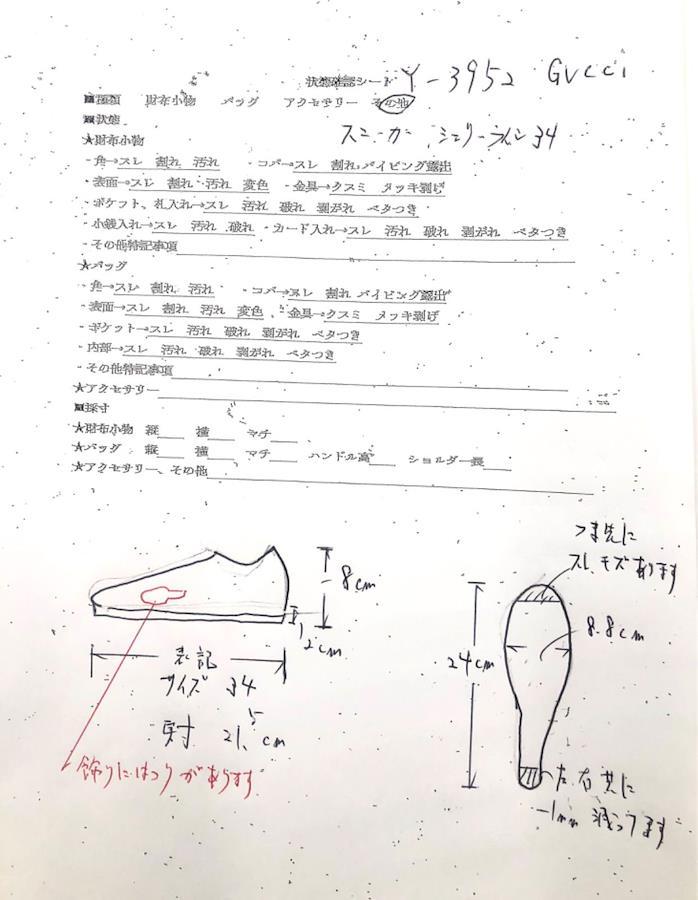 状態確認シート Y-3952 GUCCI
■種類 財布小物 バッグ アクセサリー その他
■状態 スニーカー シェリーライン 34
★財布小物
・角→スレ 割れ 汚れ ・コバ→スレ 割れ パイピング露出
・表面→スレ 割れ 汚れ 変色 ・金具→クスミ メッキ剥げ
・ポケット、札入れ→スレ 汚れ 破れ 剥がれ ベタつき
・小銭入れ→スレ 汚れ 破れ ・カード入れ→スレ 汚れ 破れ 剥がれ ベタつき
・その他特記事項
★バッグ
・角→スレ 割れ 汚れ ・コバ→スレ 割れ パイピング露出
・表面→スレ 割れ 汚れ 変色 ・金具→クスミ メッキ剥げ
・ポケット→スレ 汚れ 破れ 剥がれ ベタつき
・内部→スレ 汚れ 破れ 剥がれ ベタつき
・その他特記事項
★アクセサリー
■採寸
★財布小物 縦 横 マチ
★バッグ 縦 横 マチ ハンドル高 ショルダー長
★アクセサリー、その他
つま先に
スレ、キズあります
8cm
2cm
表記
サイズ 34
実寸 21.5cm
飾りにほつれがあります
24cm
8.8cm
左右共に
1mm 減ってます